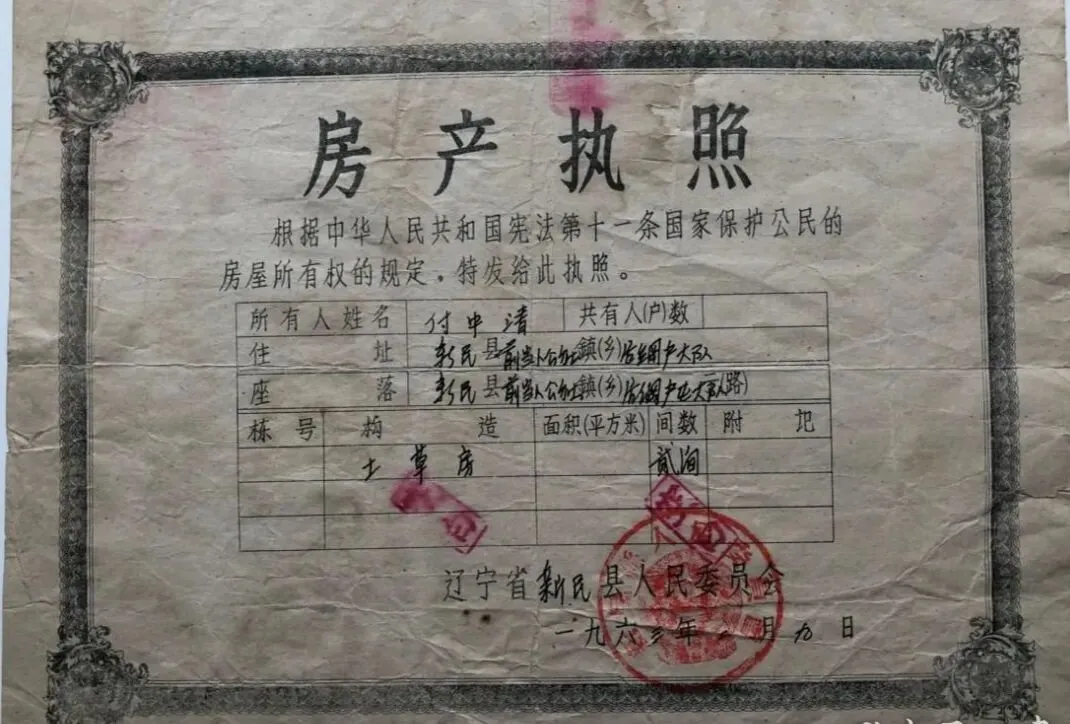 房产执照
根据中华人民共和国宪法第十一条国家保护公民的
房屋所有权的规定,特发给此执照。
所有人姓名 付中清 共有人(户)数
住址 新民县前当人公社镇(乡)后网户大队
座落 新民县前当人公社镇(乡)后网户屯(路)
栋号 构造 面积(平方米) 间数 附记
土草房 贰间
辽宁省新民县人民委员会
一九六三年 月九日